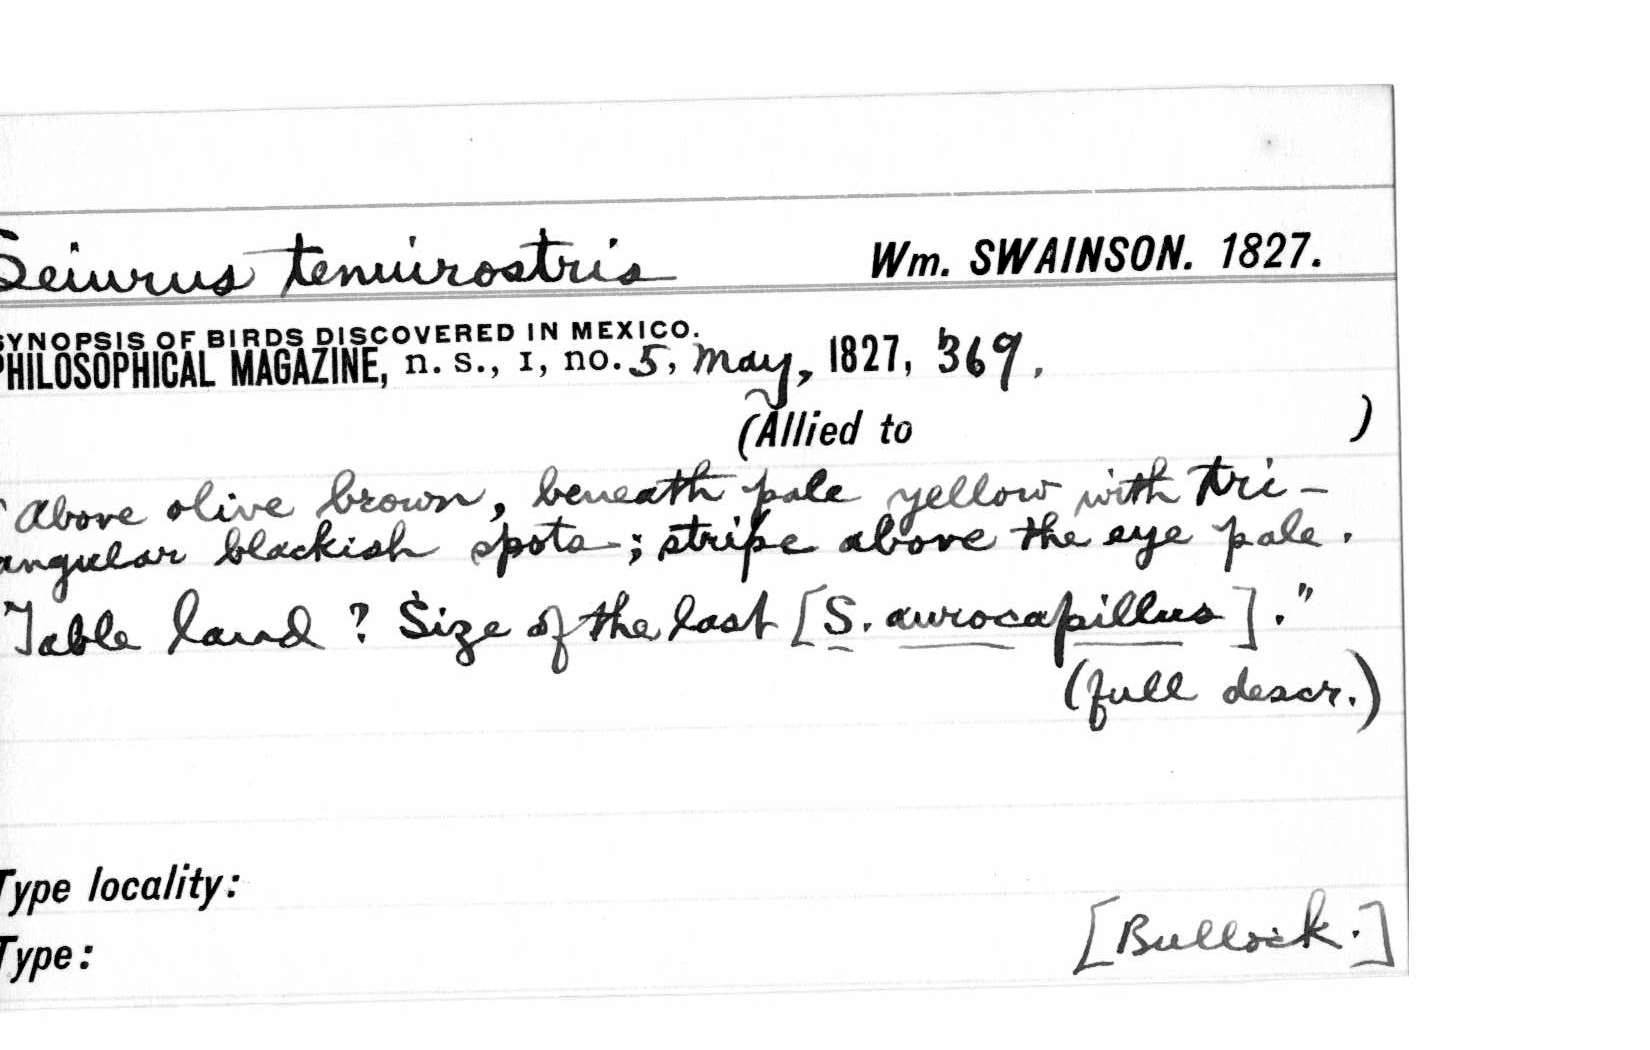 Seiurus tenuirostris Wm. SWAINSON. 1827.
SYNOPSIS OF BIRDS DISCOVERED IN MEXICO.
PHILOSOPHICAL MAGAZINE, n. s., I, no. 5, May, 1827, 369.
(Allied to )
"Above olive brown, beneath pale yellow with tri-
angular blackish spots; stripe above the eye pale.
"Table land? Size of the last [S. aurocapillus]."
(full descr.)
Type locality:
Type: [Bullock.]